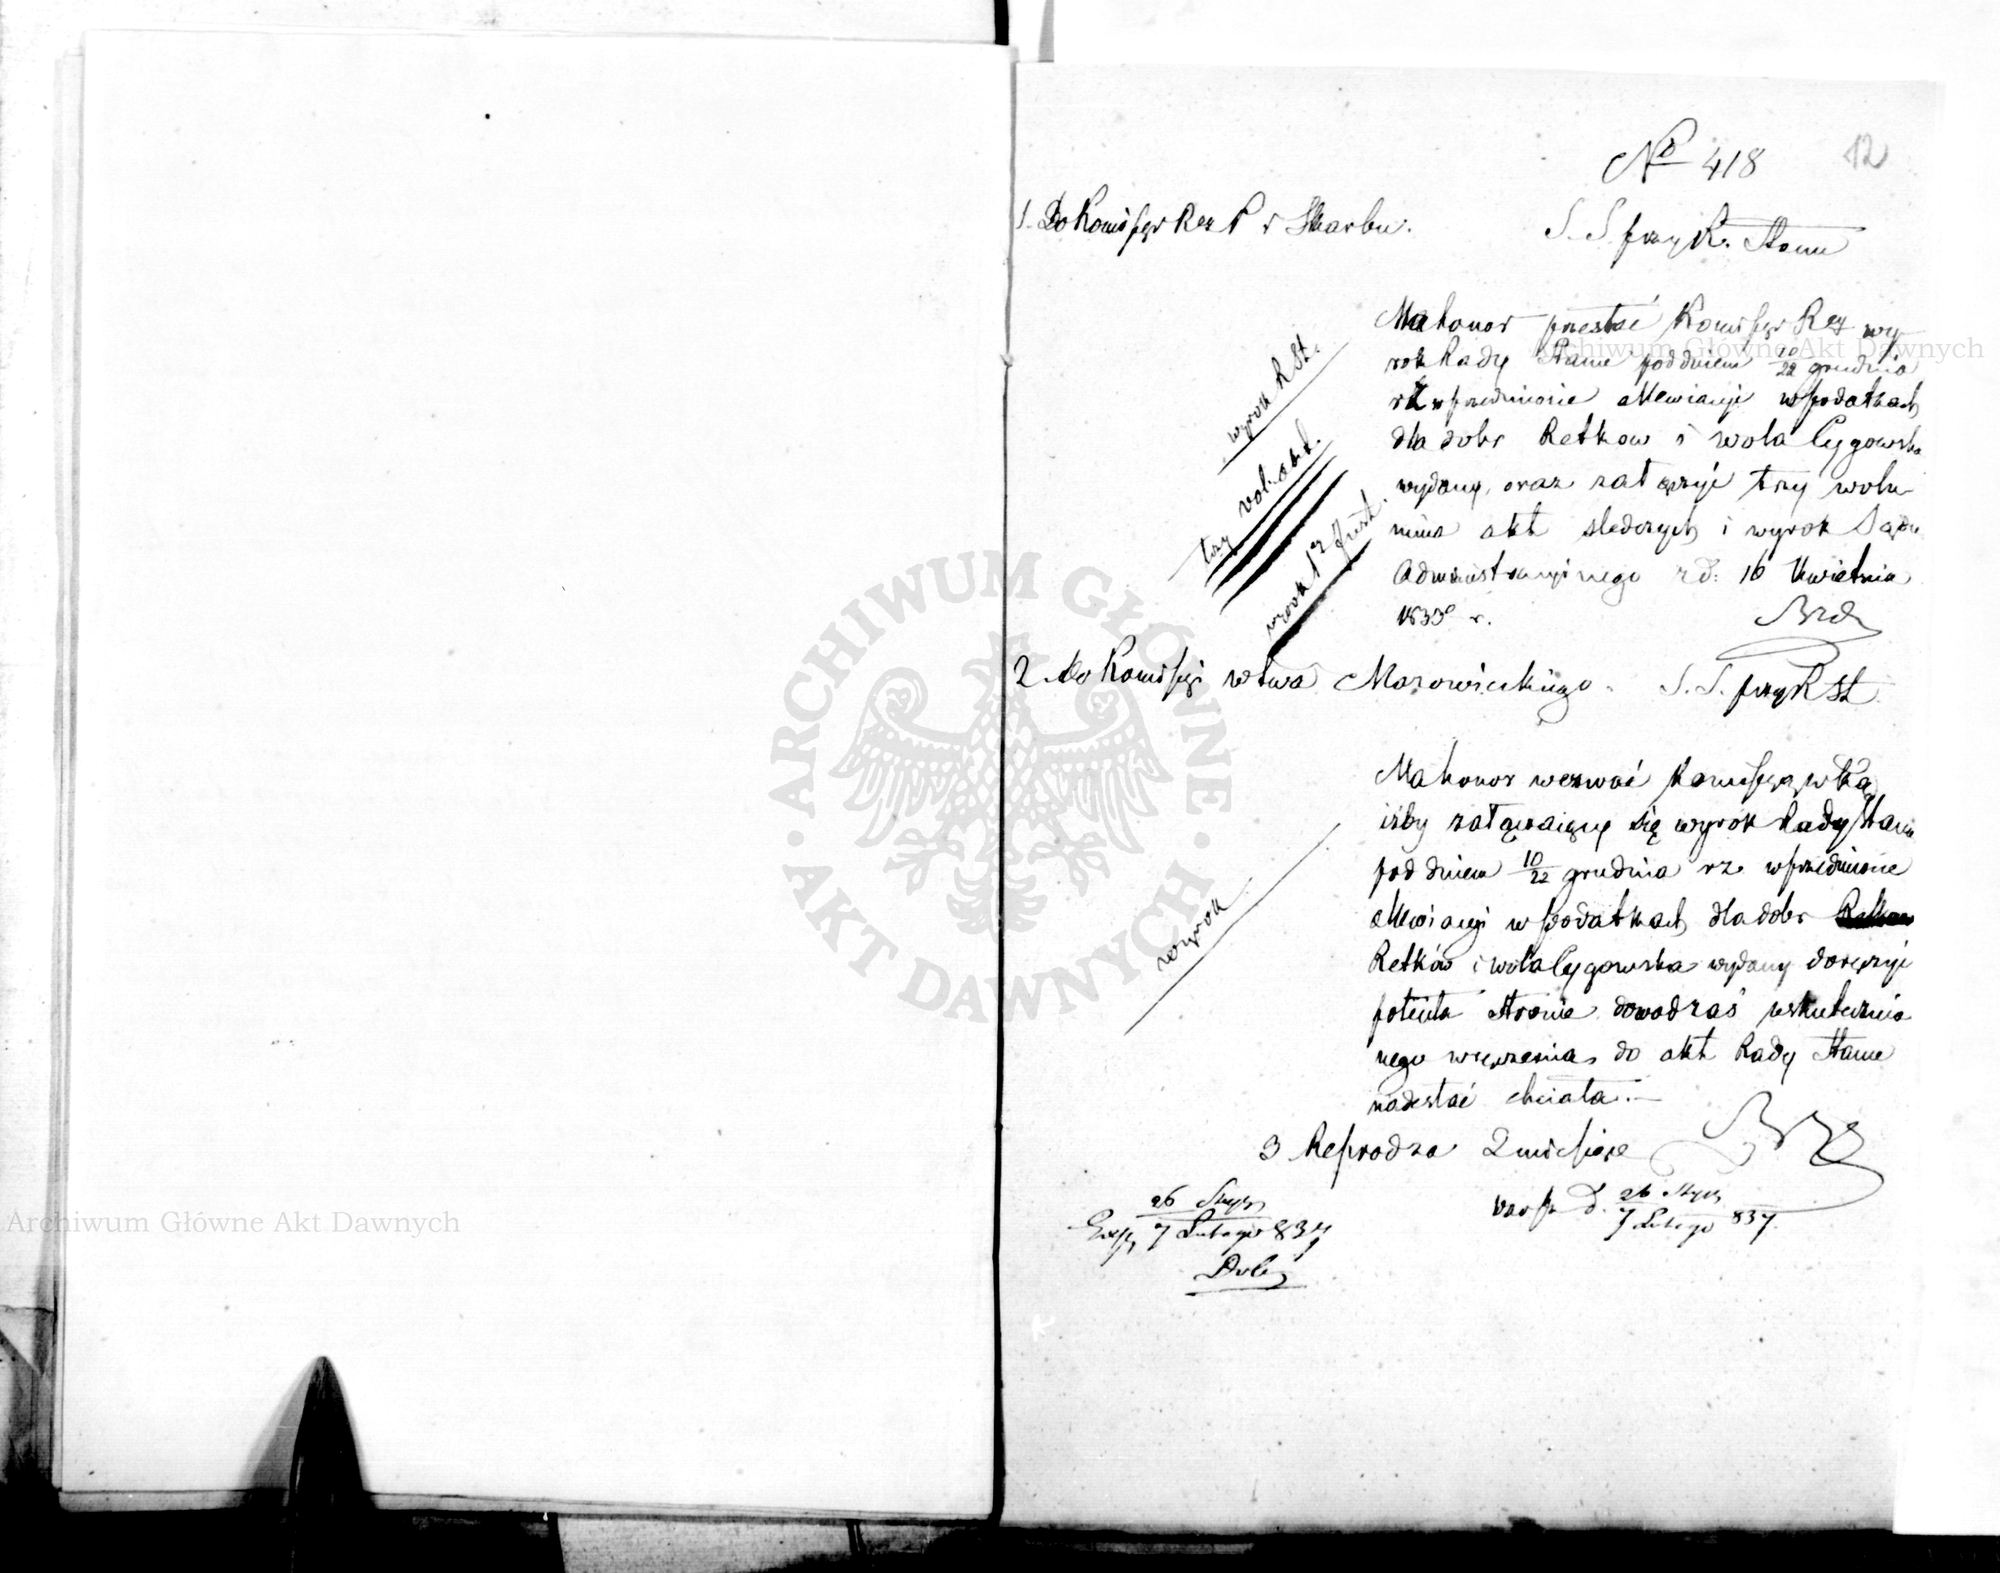 12
No 418
1. Do Komissyi Rzą P i Skarbu.
S. S. przy R. Stanu
Ma honor przesłać Komissyi Rzą wy
rok Rady Stanu pod dniem 10/22 grudnia
rz w przedmiocie allewiacyi w podatkach
dla dobr Retkow i Wola Cygowska
wydany, oraz załączyć trzy wolu
mina akt śledczych i wyrok Sądu
Administracyjnego z d: 16 Kwietnia
1833 r.
wyrok R St.
trzy vol: akt.
wyrok 1ej Inst.
2. do Komissyi wtwa Mazowieckiego.
S. S. przy R St
Ma honor wezwać Komissyą wtką
iżby załączaiący się wyrok Rady Stanu
pod dniem 10/22 grudnia rz. w przedmiocie
allewiacyi w podatkach dla dobr Retkow
Retków i Wola Cygowska wydany doręczyć
potenta stronie dowod zaś uskutecznio
nego wręczenia do akt Rady Stanu
nadesłać chciała.—
wyrok
3 Reproduza 2 miesiące
26 Stycz
Exp. 7 Lutego 837
26 Stycz
d. 7 Lutego 837.
Archiwum Główne Akt Dawnych
Archiwum Główne Akt Dawnych
· ARCHIWUM GŁÓWNE · AKT DAWNYCH